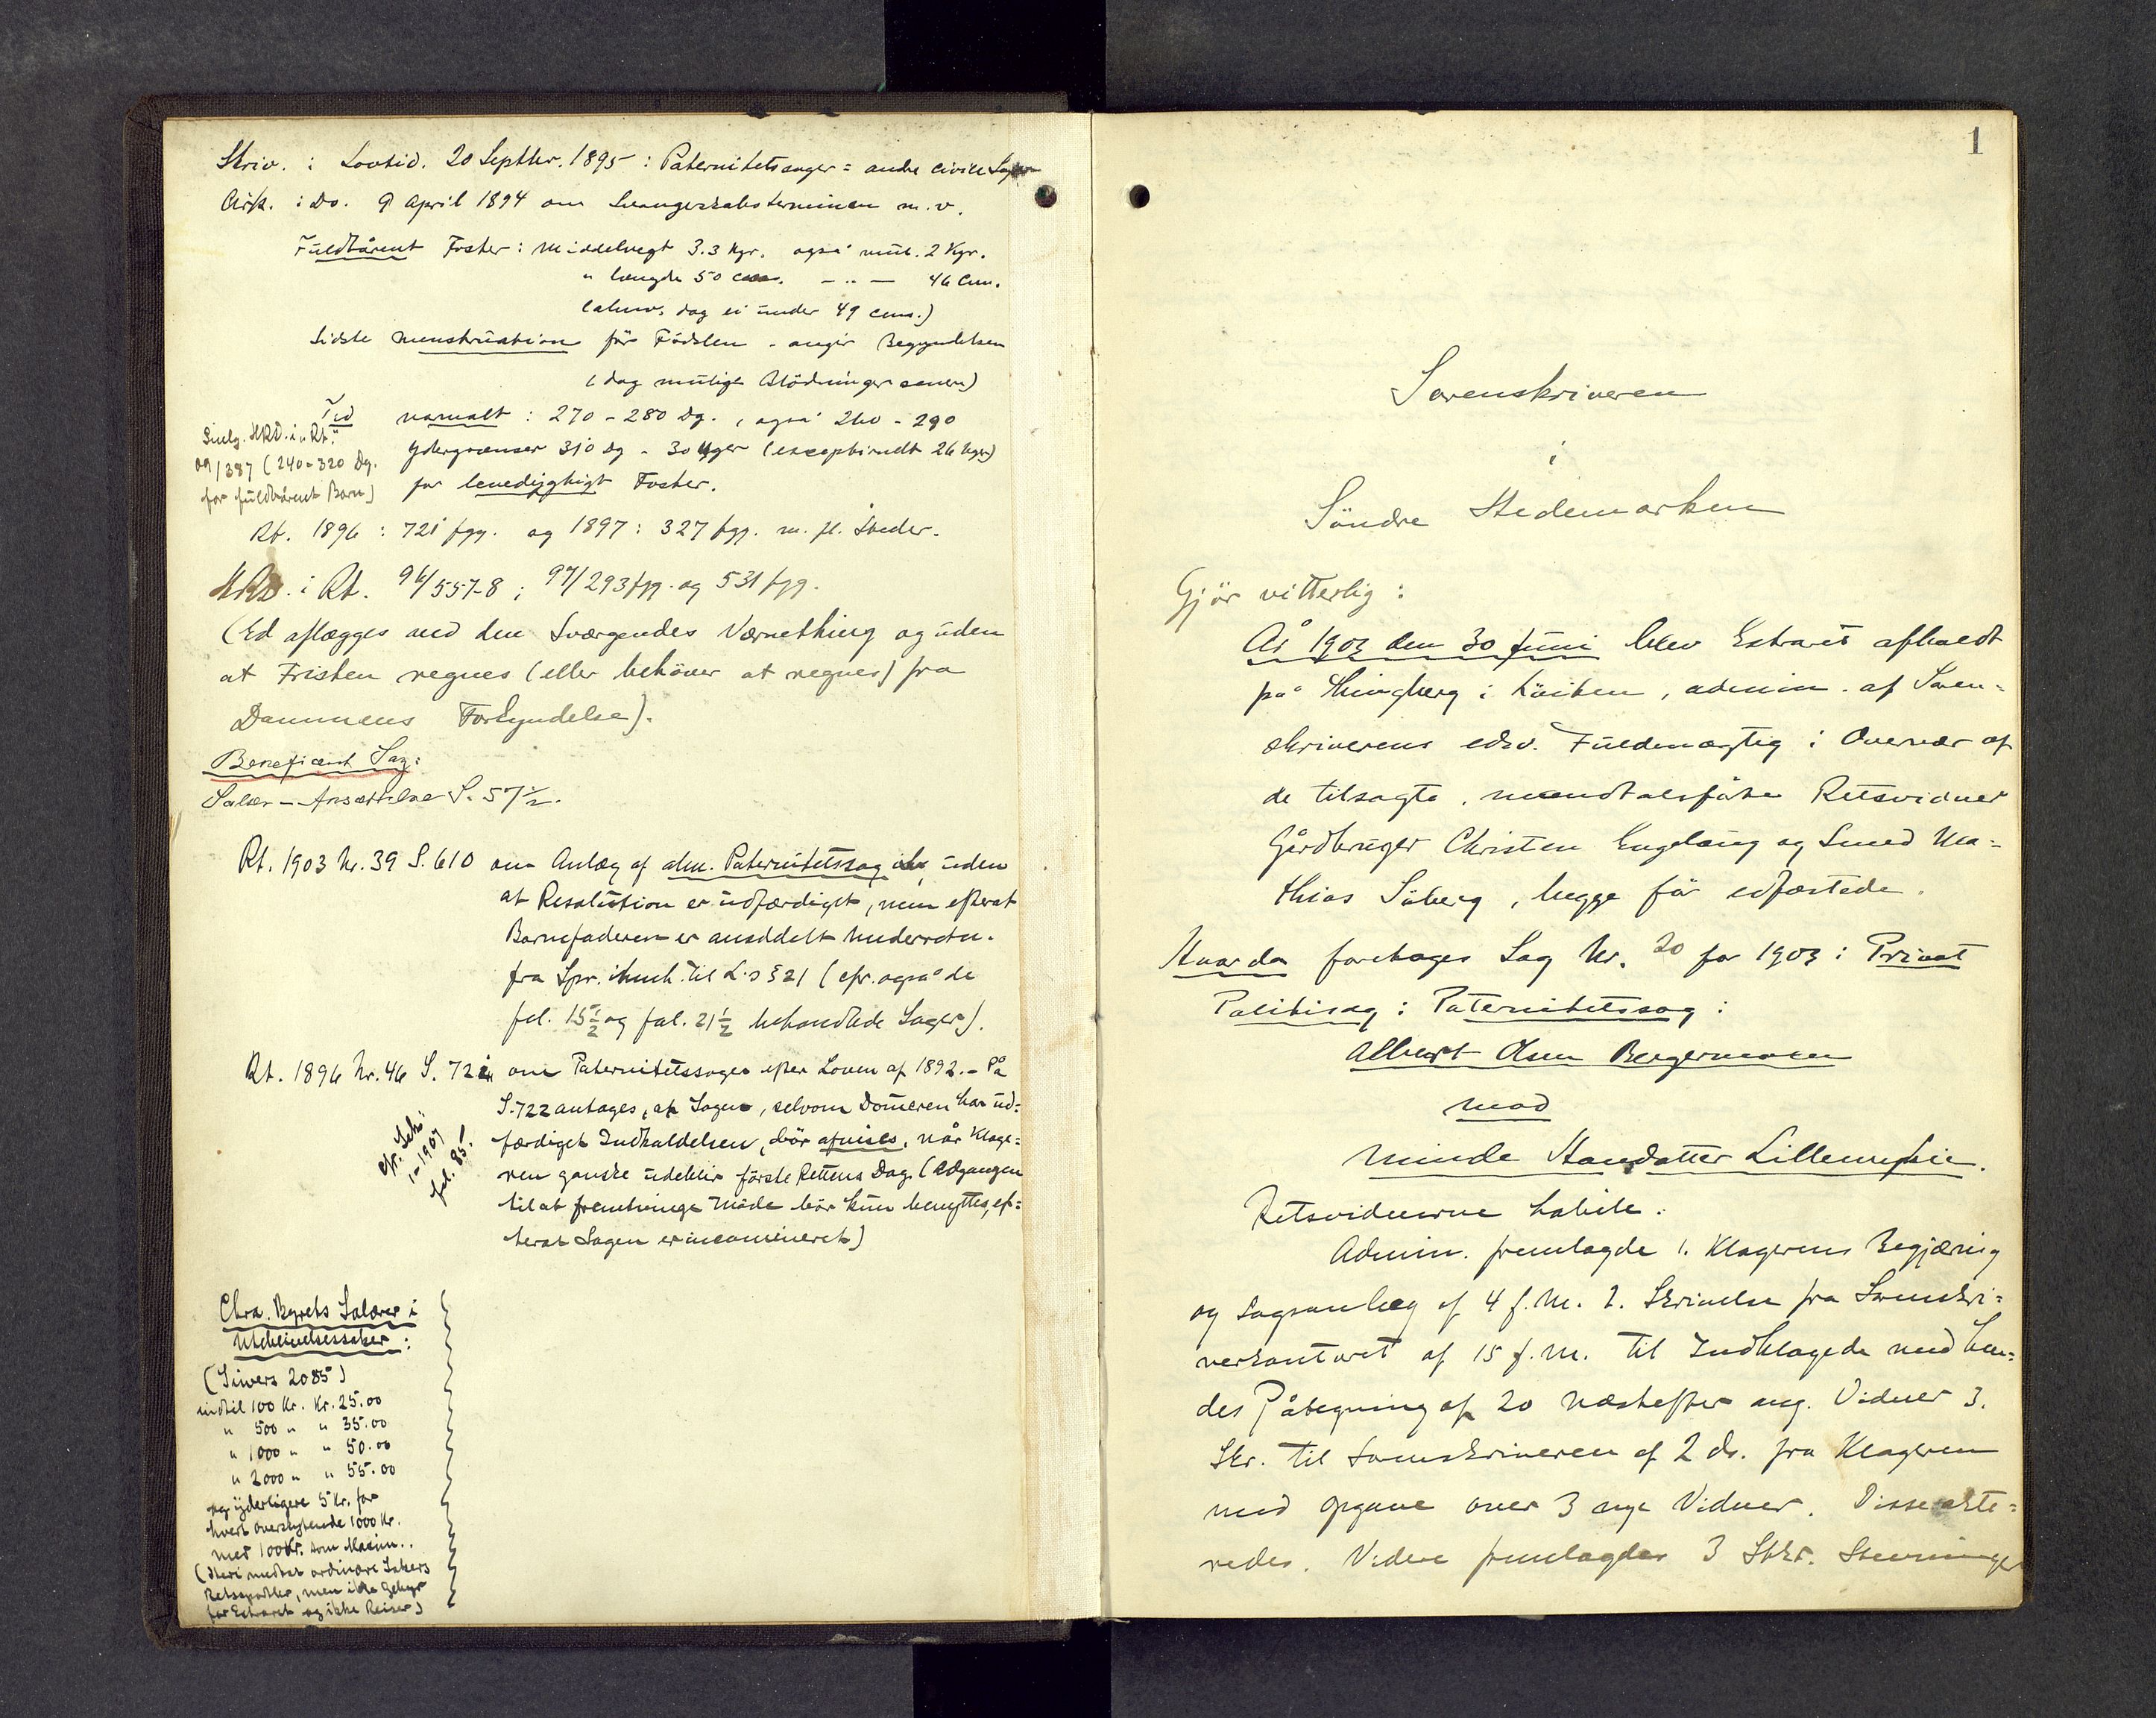 Skriv. i Lovtid. 20 Septbr. 1895: Paternitetssager = andre civile Sager
Cirk. i Do. 9 April 1894 om Svangerskabsterminen m.v.
Fuldbårent Foster: Middelvegt 3.3 Kgr. også mul. 2 Kgr.
" længde 50 cm. - " - 46 Cm.
(almv. dog ei under 49 cms.)
Sidste menstruation før Fødslen - angir Begyndelsen
(dog mulige Blødninger senere)
Tid normalt: 270 - 280 Dg., også 260 - 290
Ydergrænser 310 dg - 30 Uger (exceptionelt 26 Uger)
for levedygtigt Foster.
Smlg. HRD. i "Rt."
09/387 (240-320 Dg.
for fuldbårent Barn)
Rt. 1896: 721 fgg. og 1897: 327 fgg. m. fl. Steder.
HRD. i Rt. 96/557-8; 97/293 fgg. og 531 fgg.
(Ed aflægges ved den Sværgendes Værnething og uden
at Fristen regnes (eller behöver at regnes) fra
Dommens Forkyndelse).
Beneficeret Sag:
Salær-Ansættelse S. 57½.
Rt. 1903 Nr. 39 S. 610 om Anlæg af alm. Paternitetssag uden
at Resolution er udfærdiget, men efterat
Barnefaderen er anseddelt Underretn.
fra Spr. i Henh. til L.s § 21 (cfr. også de
fol. 15½ og fol. 21½ behandlede Sager).
Rt. 1896 Nr. 46 S. 721 om Paternitetssager efter Loven af 1892. - På
S. 722 antages, at Sagen, selvom Domeren har ud=
færdiget Indkaldelsen, bör afvises, når Klage=
ren ganske udeblir förste Rettens Dag. (Adgangen
til at fremtvinge Möde bör kun benyttes, ef=
terat Sagen er incamineret)
cfr. Sak
1-1907
fol. 85!
Chra. Byrets Salærer i
Uteblivelsessaker:
(Siwers 2085)
indtil 100 Kr. Kr. 25.00
" 500 " " 35.00
" 1000 " " 50.00
" 2000 " " 55.00
og yderligere 5 Kr. for
hvert overskytende 1000 Kr.
med 100 Kr. som Maxim..
(Heri medtat ordinære Sakers
Retsgebyr, men ikke Gebyr
for Extraret og ikke Reiser)
1
Sorenskriveren
i
Söndre Hedemarken
Gjör vitterlig:
År 1903 den 30 Juni blev Extraret afholdt
på Thingberg i Löiten, admin. af Soren=
skriverens edsv. Fuldmægtig i Overvær af
de tilsagte, mandtalsførte Retsvidner
Gårdbruger Christen Engelaug og Smed Ma=
thias Såberg, begge för edfæstede.
Hvorda foretoges Sag Nr. 20 for 1903: Privat
Politisag: Paternitetssag:
Albert Olsen Bergermoen
mod
Minde Hansdatter Lillemyhre.
Retsvidnerne habile.
Admin. fremlagde 1. Klagerens Begjæring
og Sagsanlæg af 4 f. M. 2. Skrivelse fra Sorenskri=
verkontoret af 15 f. M. til Indklagede med hen=
des Påtegning af 20 næstefter ang. Vidner 3.
Skr. til Sorenskriveren af 2 ds. fra Klageren
med opgave over 3 nye Vidner. Disse akte=
redes. Videre fremlagdes 3 Stkr. Stevninger